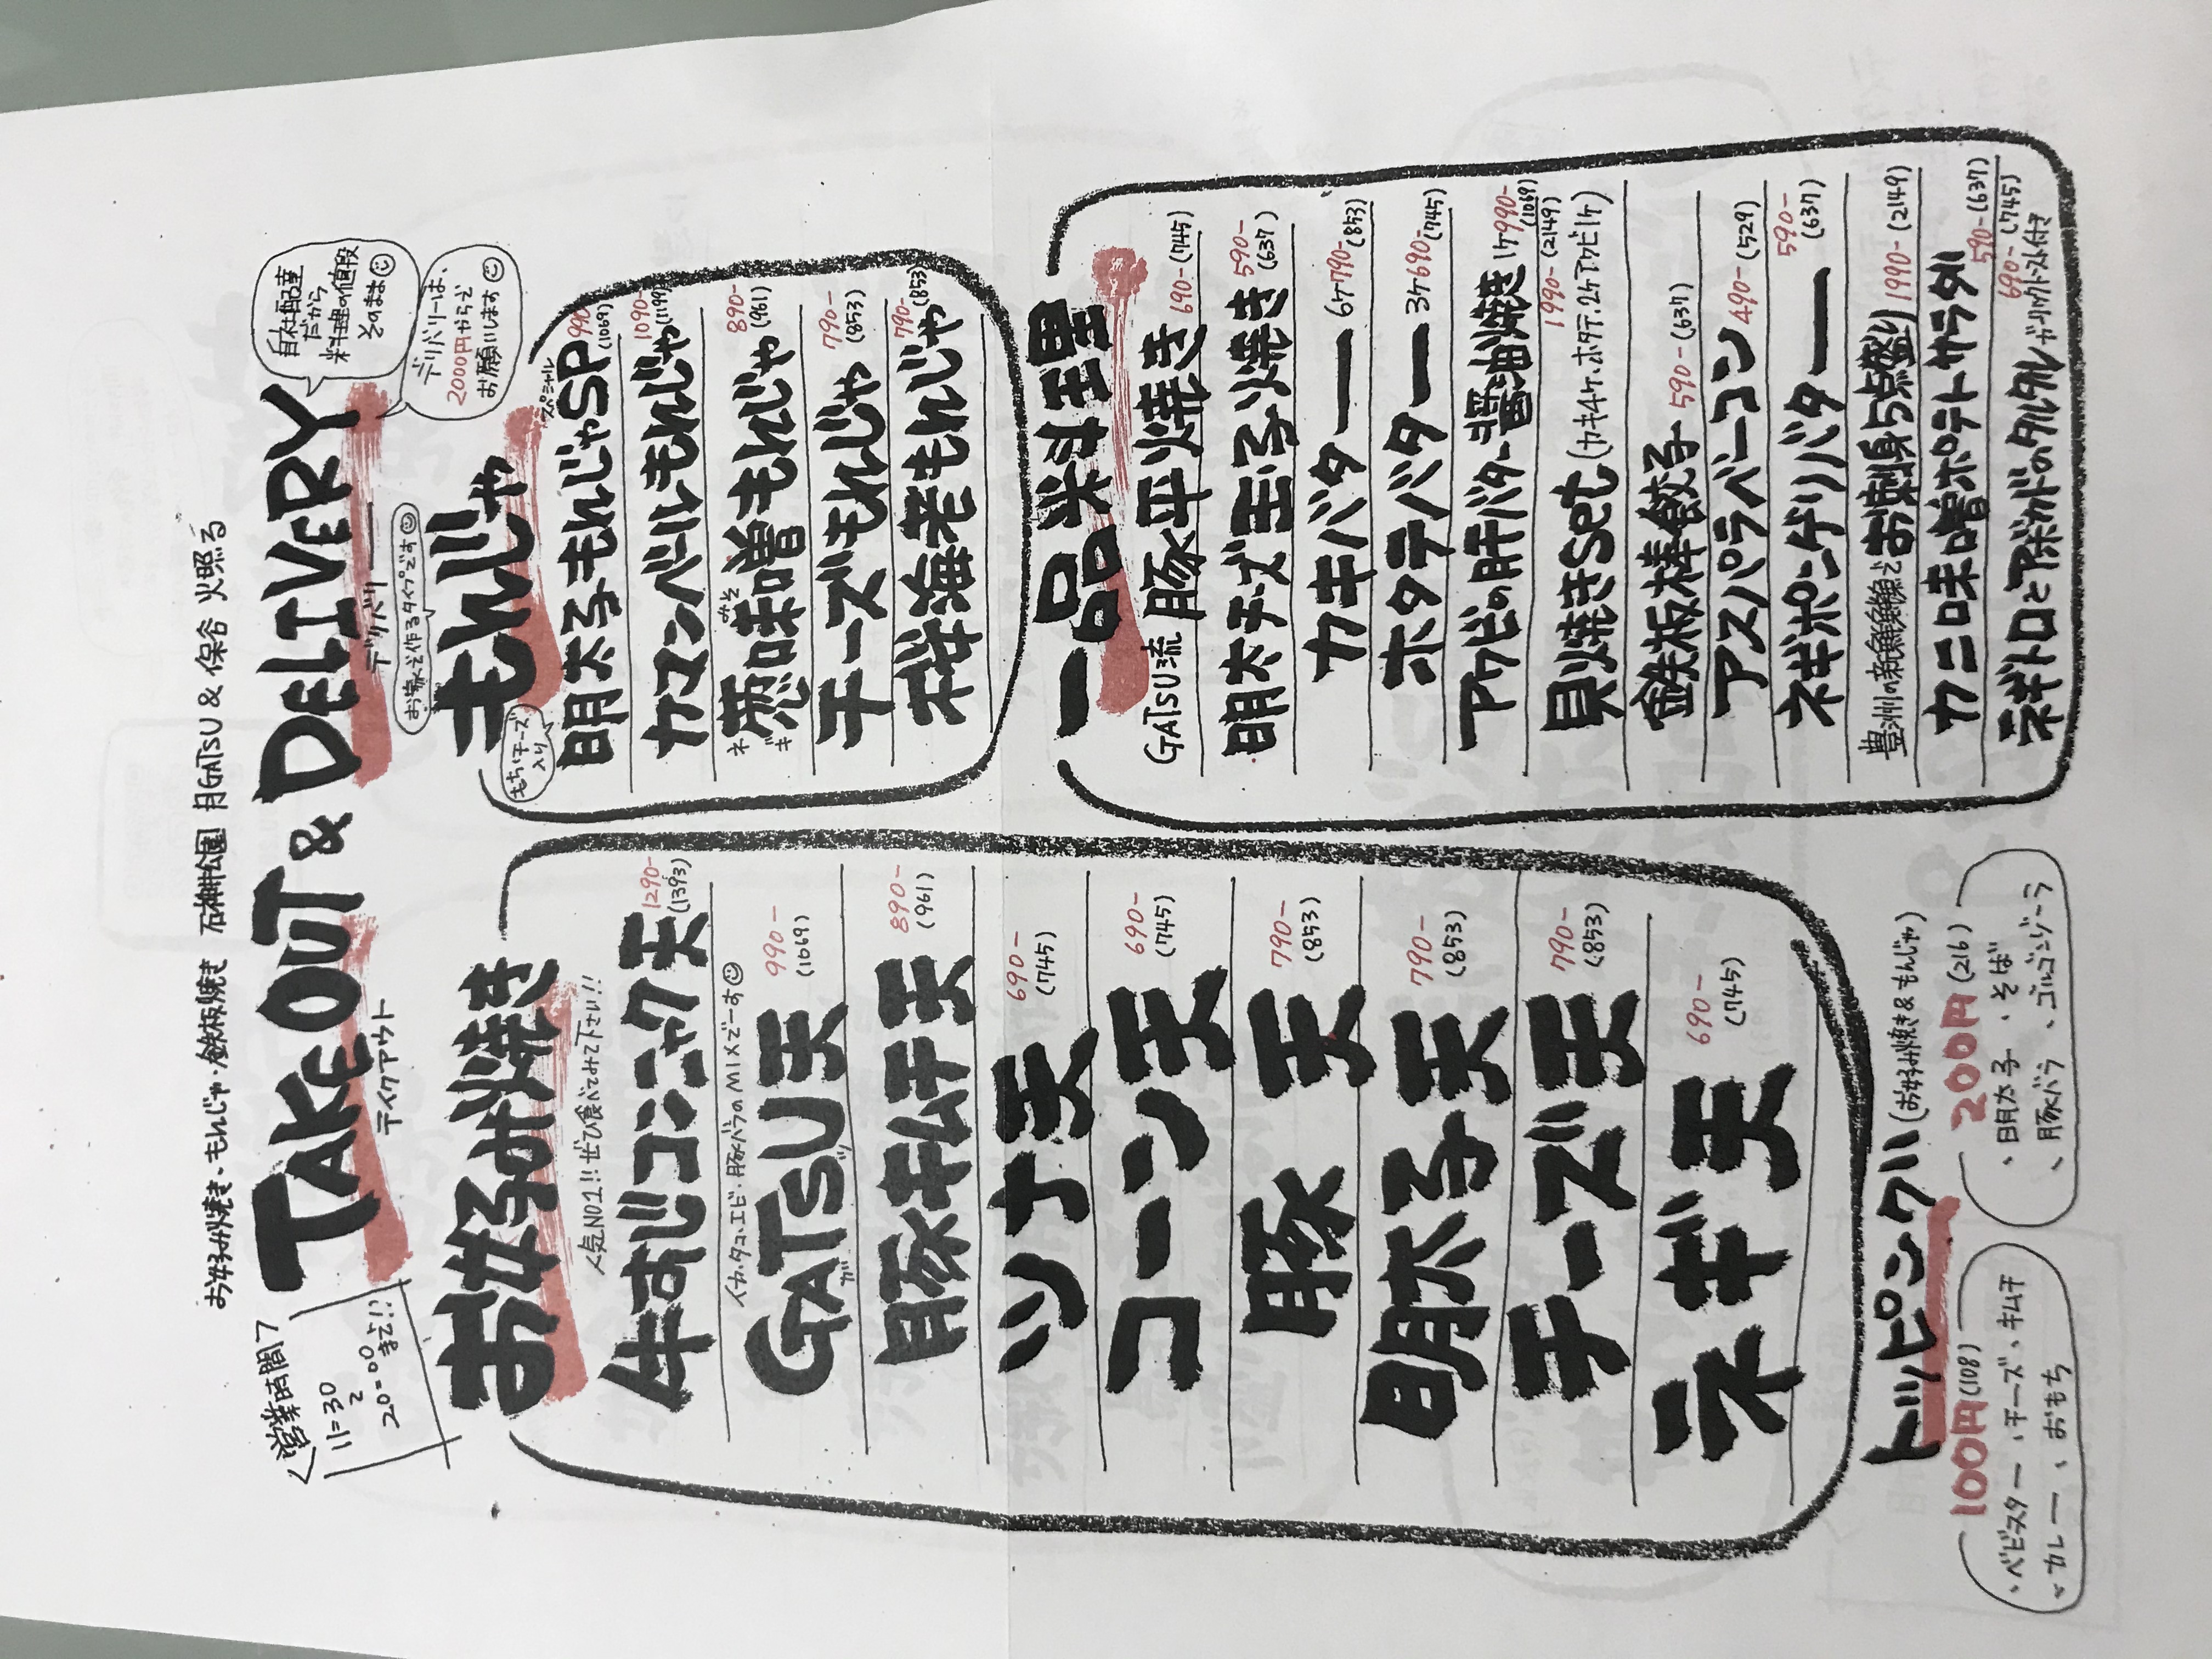 お好み焼き・もんじゃ・鉄板焼き 石神井公園 月GATSU & 保谷 火照る
<営業時間>
11:30
20:00
まで!!
TAKE OUT & DELIVERY
テイクアウト
デリバリー
自社配達
だから
料理の値段
そのまま
デリバリーは、
2000円からで
お願いします
お好み焼き
人気NO1!! ぜひ食べてみて下さい!!
牛すじコンニャク天 1290- (1393)
イカ・タコ・エビ・豚バラのMIXでーす
GATSU天 990- (1069)
ガ ツ
豚キムチ天 890- (961)
ツナ天 690- (745)
コーン天 690- (745)
豚天 790- (853)
明太子天 790- (853)
チーズ天 790- (853)
ネギ天 690- (745)
お家で作るタイプです
もんじゃ
もちチーズ
入り
スペシャル
明太子もんじゃSP 990- (1069)
カマンベールもんじゃ 1090- (1199)
ネギ みそ
葱味噌もんじゃ 890- (961)
チーズもんじゃ 790- (853)
桜海老もんじゃ 790- (853)
一品料理
GATSU流 豚平焼き 690- (745)
明太チーズ玉子焼き 590- (637)
カキバター 6ケ790- (853)
ホタテバター 3ケ690- (745)
アワビの肝バター醤油焼き 1ケ990- (1069)
貝焼きSet (カキ4ケ、ホタテ2ケ、アワビ1ケ) 1990- (2149)
鉄板棒餃子 590- (637)
アスパラベーコン 490- (529)
ネギポンゲソバター 590- (637)
豊洲の新鮮鮮魚とお刺身5点盛り 1990- (2149)
カニ味噌ポテトサラダ 590- (637)
ネギトロとアボカドのタルタル ガーリックトースト付き 690- (745)
トッピング (お好み焼き&もんじゃ)
100円(108)
・ベビースター、チーズ、キムチ
・カレー、おもち
200円(216)
・明太子、そば
・豚バラ、ゴルゴンゾーラ